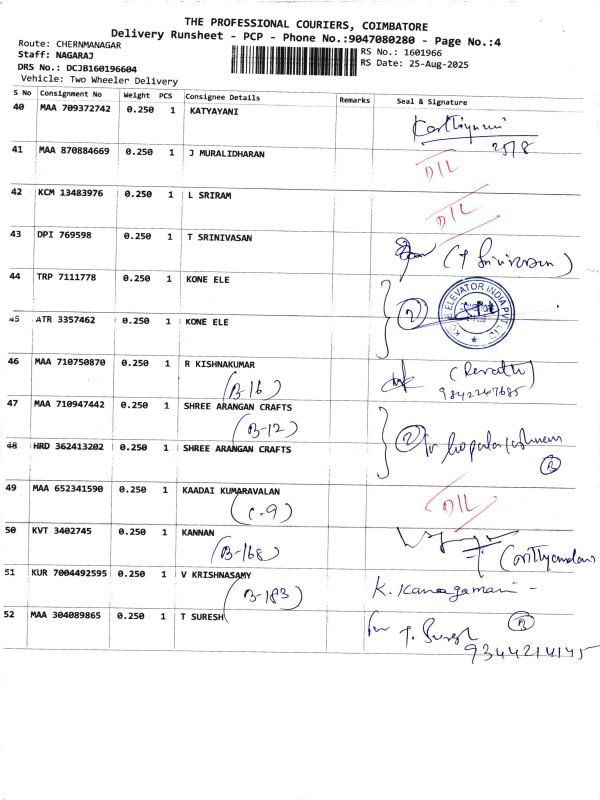 THE PROFESSIONAL COURIERS, COIMBATORE
Delivery Runsheet - PCP - Phone No.:9047080280 - Page No.:4
Route: CHERNMANAGAR
Staff: NAGARAJ
DRS No.: DCJB160196604
Vehicle: Two Wheeler Delivery
RS No.: 1601966
RS Date: 25-Aug-2025
S No Consignment No Weight PCS Consignee Details Remarks Seal & Signature
40 MAA 709372742 0.250 1 KATYAYANI
25/8
41 MAA 870884669 0.250 1 J MURALIDHARAN D/L
42 KCM 13483976 0.250 1 L SRIRAM D/L
43 DPI 769598 0.250 1 T SRINIVASAN (T Srinivasan)
44 TRP 7111778 0.250 1 KONE ELE 2
KONE ELEVATOR INDIA PVT LTD
45 ATR 3357462 0.250 1 KONE ELE
46 MAA 710750870 0.250 1 R KISHNAKUMAR (Revathi)
(B-16) 9842247685
47 MAA 710947442 0.250 1 SHREE ARANGAN CRAFTS
(B-12) 2
48 HRD 362413202 0.250 1 SHREE ARANGAN CRAFTS
49 MAA 652341590 0.250 1 KAADAI KUMARAVALAN D/L
(C-9)
50 KVT 3402745 0.250 1 KANNAN
(B-168)
51 KUR 7004492595 0.250 1 V KRISHNASAMY K. Kanagamani -
(B-183)
52 MAA 304089865 0.250 1 T SURESH T. Suresh
9344214145